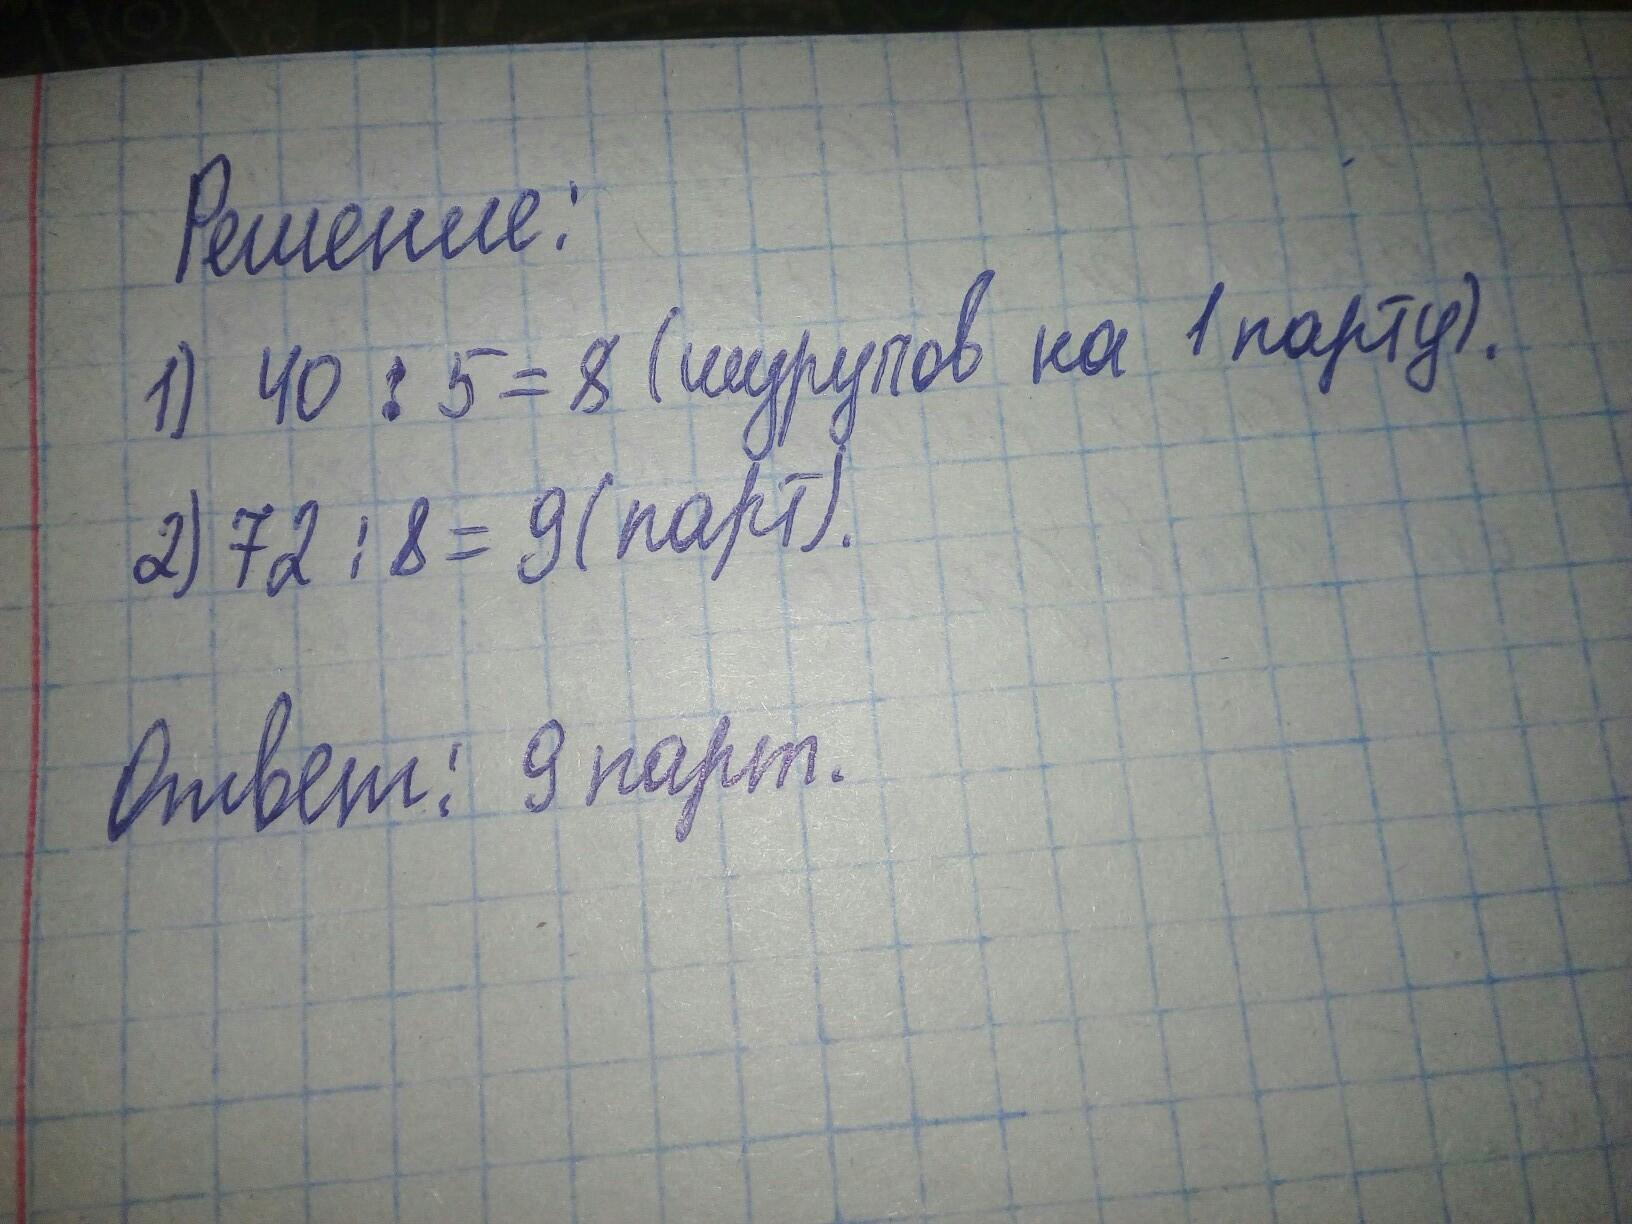 Решение:
1) 40 : 5 = 8 (шурупов на 1 парту).
2) 72 : 8 = 9 (парт).
Ответ: 9 парт.